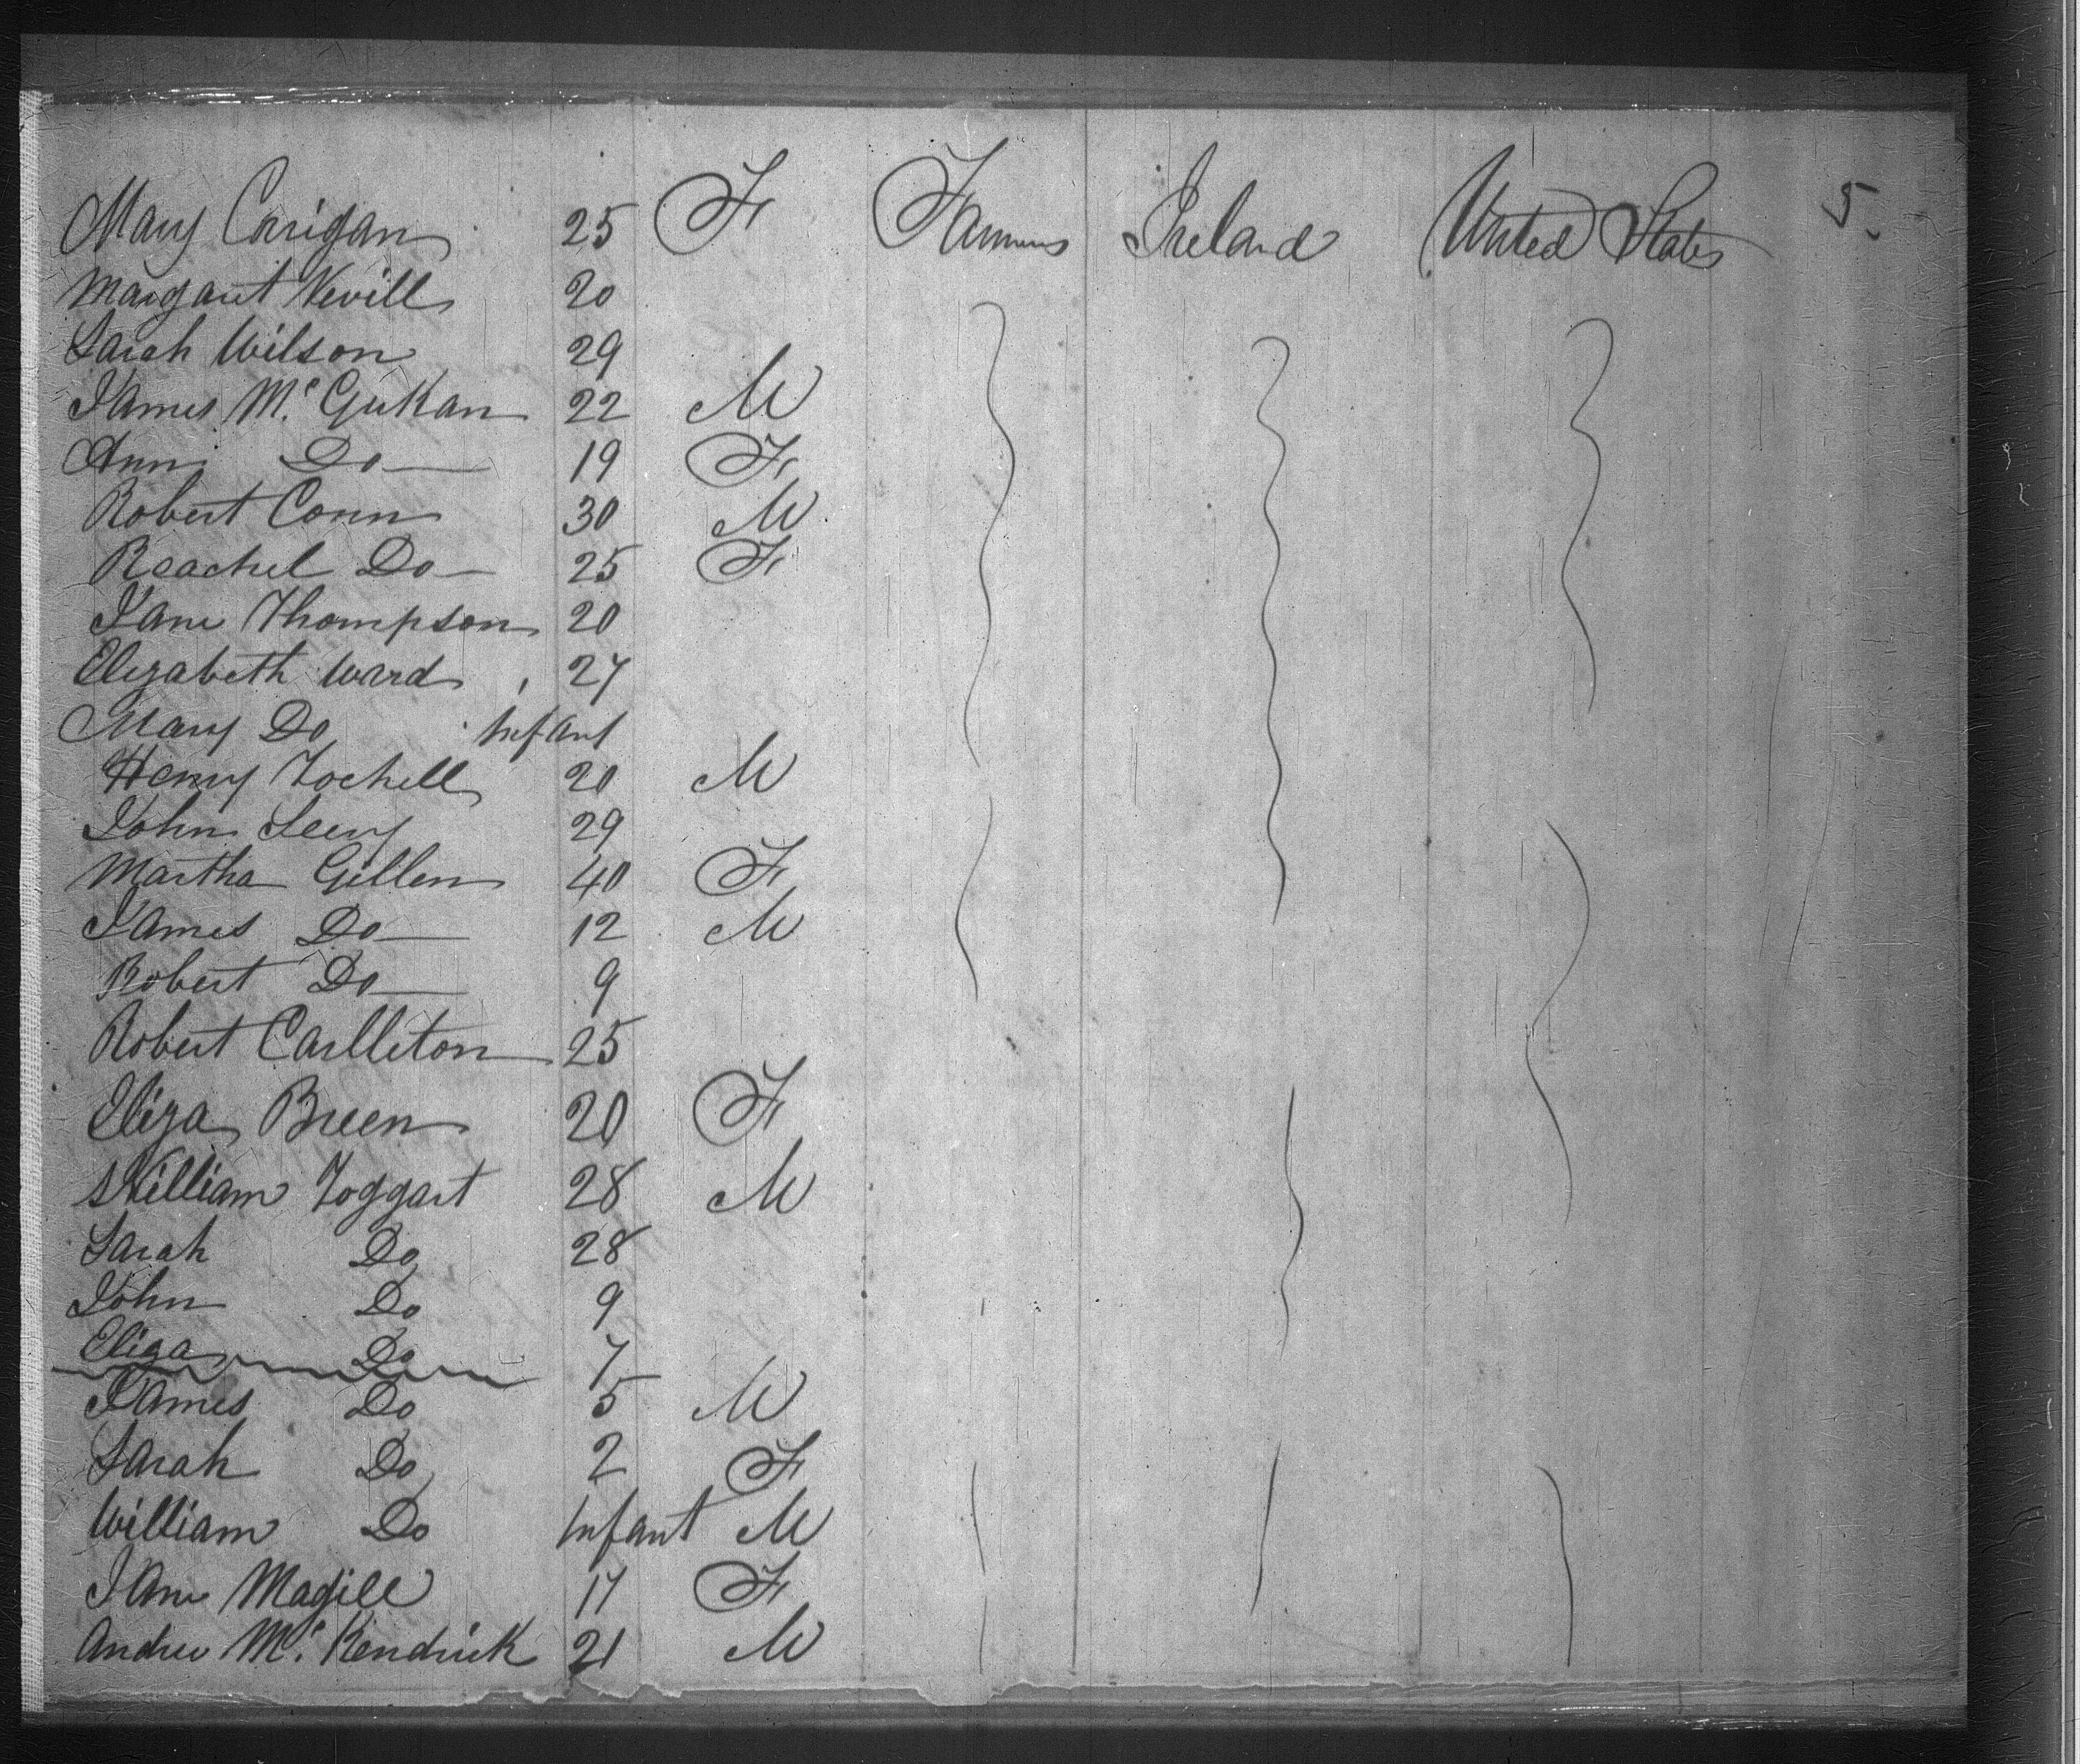 5.
Mary Corrigan 25 F Farmers Ireland United States
Margaret Nevill 20
Sarah Wilson 29
James Mc Gukan 22 M
Ann Do 19 F
Robert Conn 30 M
Reachel Do 25 F
Jane Thompson 20
Elizabeth Ward 27
Mary Do Infant
Henry Tochell 20 M
John Leery 29
Martha Gillen 40 F
James Do 12 M
Robert Do 9
Robert Carlleton 25
Eliza Breen 20 F
William Toggart 28 M
Sarah Do 28
John Do 9
Eliza Do 7
James Do 5 M
Sarah Do 2 F
William Do Infant M
Jane Magill 17 F
Andrew Mc Kendrick 21 M